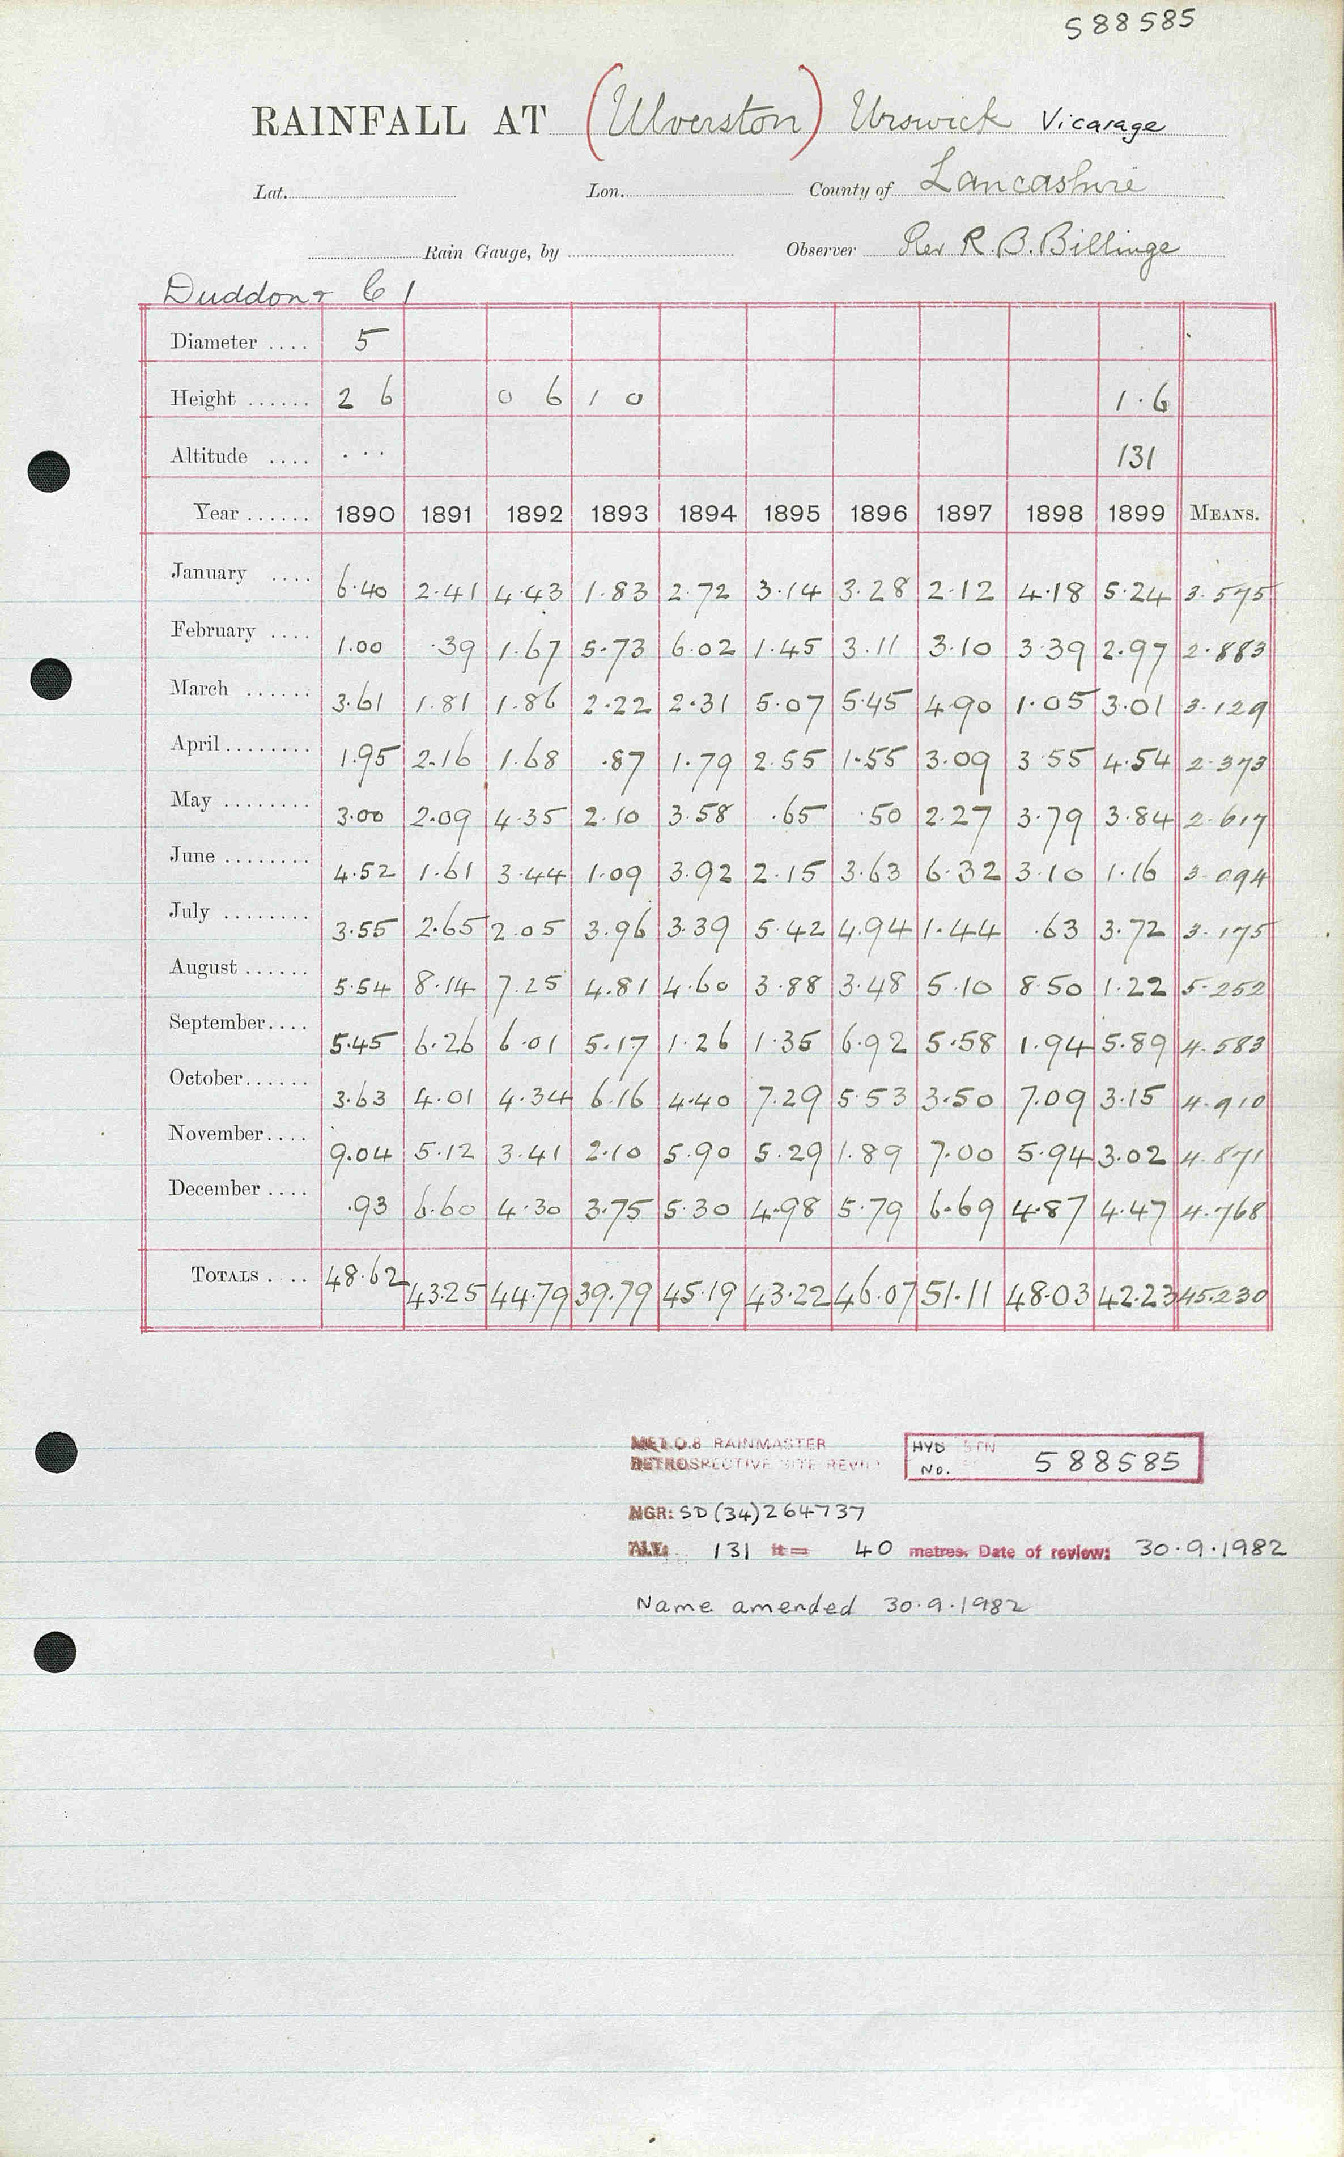 588585
RAINFALL AT (Ulverston) Urswick Vicarage
Lat. Lon. County of Lancashire
Rain Gauge, by Observer Rev R. B. Billinge
Duddon & C 1
Diameter .... 5
Height ...... 2 6 0 6 1 0 1.6
Altitude .... ... 131
Year ...... 1890 1891 1892 1893 1894 1895 1896 1897 1898 1899 MEANS.
January .... 6.40 2.41 4.43 1.83 2.72 3.14 3.28 2.12 4.18 5.24 3.575
February .... 1.00 .39 1.67 5.73 6.02 1.45 3.11 3.10 3.39 2.97 2.883
March ...... 3.61 1.81 1.86 2.22 2.31 5.07 5.45 4.90 1.05 3.01 3.129
April ........ 1.95 2.16 1.68 .87 1.79 2.55 1.55 3.09 3.55 4.54 2.373
May ........ 3.00 2.09 4.35 2.10 3.58 .65 .50 2.27 3.79 3.84 2.617
June ........ 4.52 1.61 3.44 1.09 3.92 2.15 3.63 6.32 3.10 1.16 3.094
July ........ 3.55 2.65 2.05 3.96 3.39 5.42 4.94 1.44 .63 3.72 3.175
August ...... 5.54 8.14 7.25 4.81 4.60 3.88 3.48 5.10 8.50 1.22 5.252
September.... 5.45 6.26 6.01 5.17 1.26 1.35 6.92 5.58 1.94 5.89 4.583
October...... 3.63 4.01 4.34 6.16 4.40 7.29 5.53 3.50 7.09 3.15 4.910
November.... 9.04 5.12 3.41 2.10 5.90 5.29 1.89 7.00 5.94 3.02 4.871
December .... .93 6.60 4.30 3.75 5.30 4.98 5.79 6.69 4.87 4.47 4.768
TOTALS .... 48.62 43.25 44.79 39.79 45.19 43.22 46.07 51.11 48.03 42.23 45.230
MET.O.8 RAINMASTER
RETROSPECTIVE SITE REVIEW
HYD STN
No. 588585
NGR: SD (34) 264737
ALT: 131 ft = 40 metres. Date of review: 30.9.1982
Name amended 30.9.1982